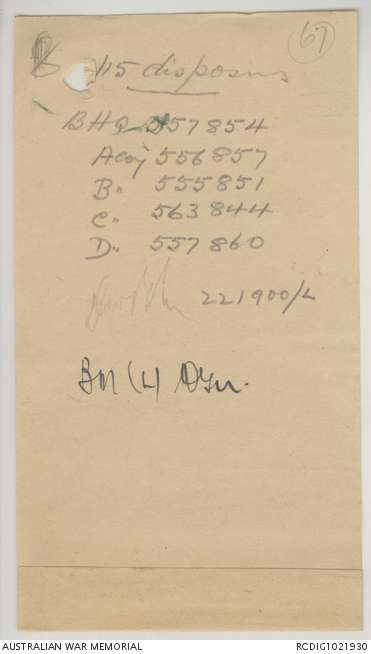 67
/15 disposns
BHQ 557854
A coy 556857
B " 555851
C " 563844
D " 557860
221900/L
BM (L)
AUSTRALIAN WAR MEMORIAL
RCDIG1021930